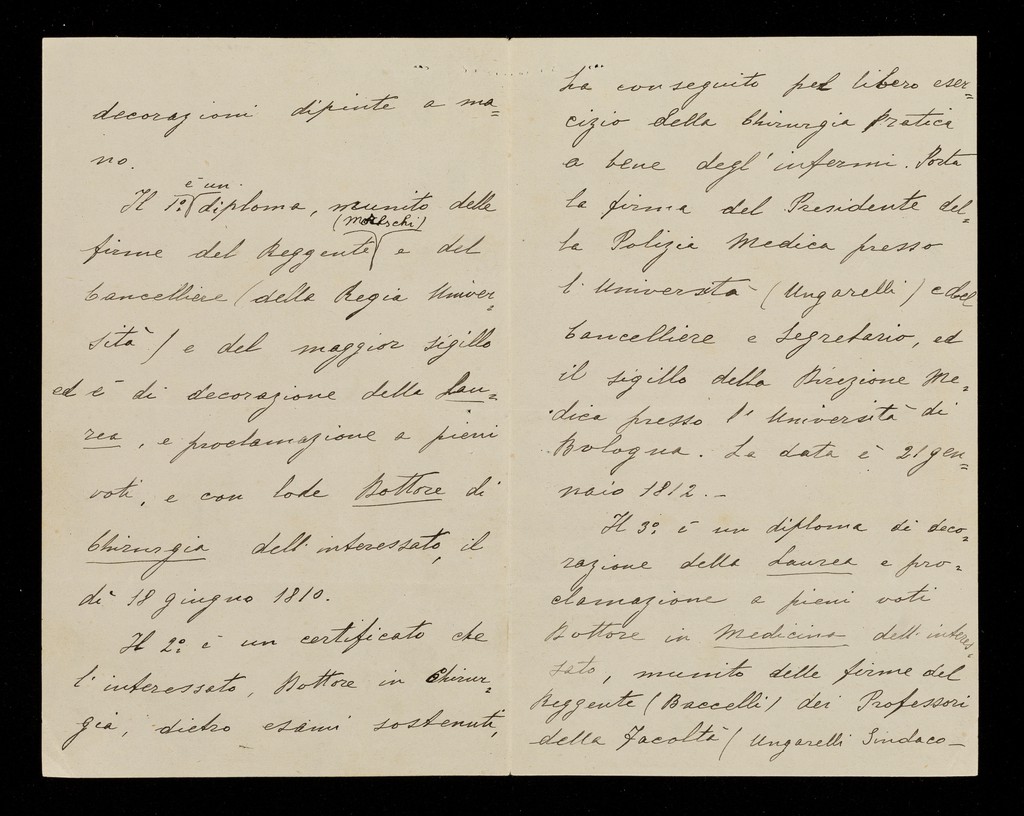 decorazioni dipinte a ma=
no.
è un
Il 1º diploma, munito delle
(Moreschi)
firme del Reggente e del
Cancelliere (della Regia Univer=
sità) e del maggior sigillo
ed è di decorazione della Lau=
rea, e proclamazione a pieni
voti, e con lode Dottore di
Chirurgia dell'interessato, il
dì 18 giugno 1810.
Il 2º è un certificato che
l'interessato, Dottore in Chirur=
gia, dietro esami sostenuti,
ha conseguito pel libero eser=
cizio della Chirurgia Pratica
a bene degl'infermi. Porta
la firma del Presidente del=
la Polizia Medica presso
l'Università (Ungarelli) e del
Cancelliere e Segretario, ed
il sigillo della Direzione Me=
dica presso l'Università di
Bologna. La data è 21 gen=
naio 1812.–
Il 3º è un diploma di deco=
razione della Laurea e pro=
clamazione a pieni voti
Dottore in Medicina dell'interes=
sato, munito delle firme del
Reggente (Baccelli) dei Professori
della Facoltà (Ungarelli Sindaco–